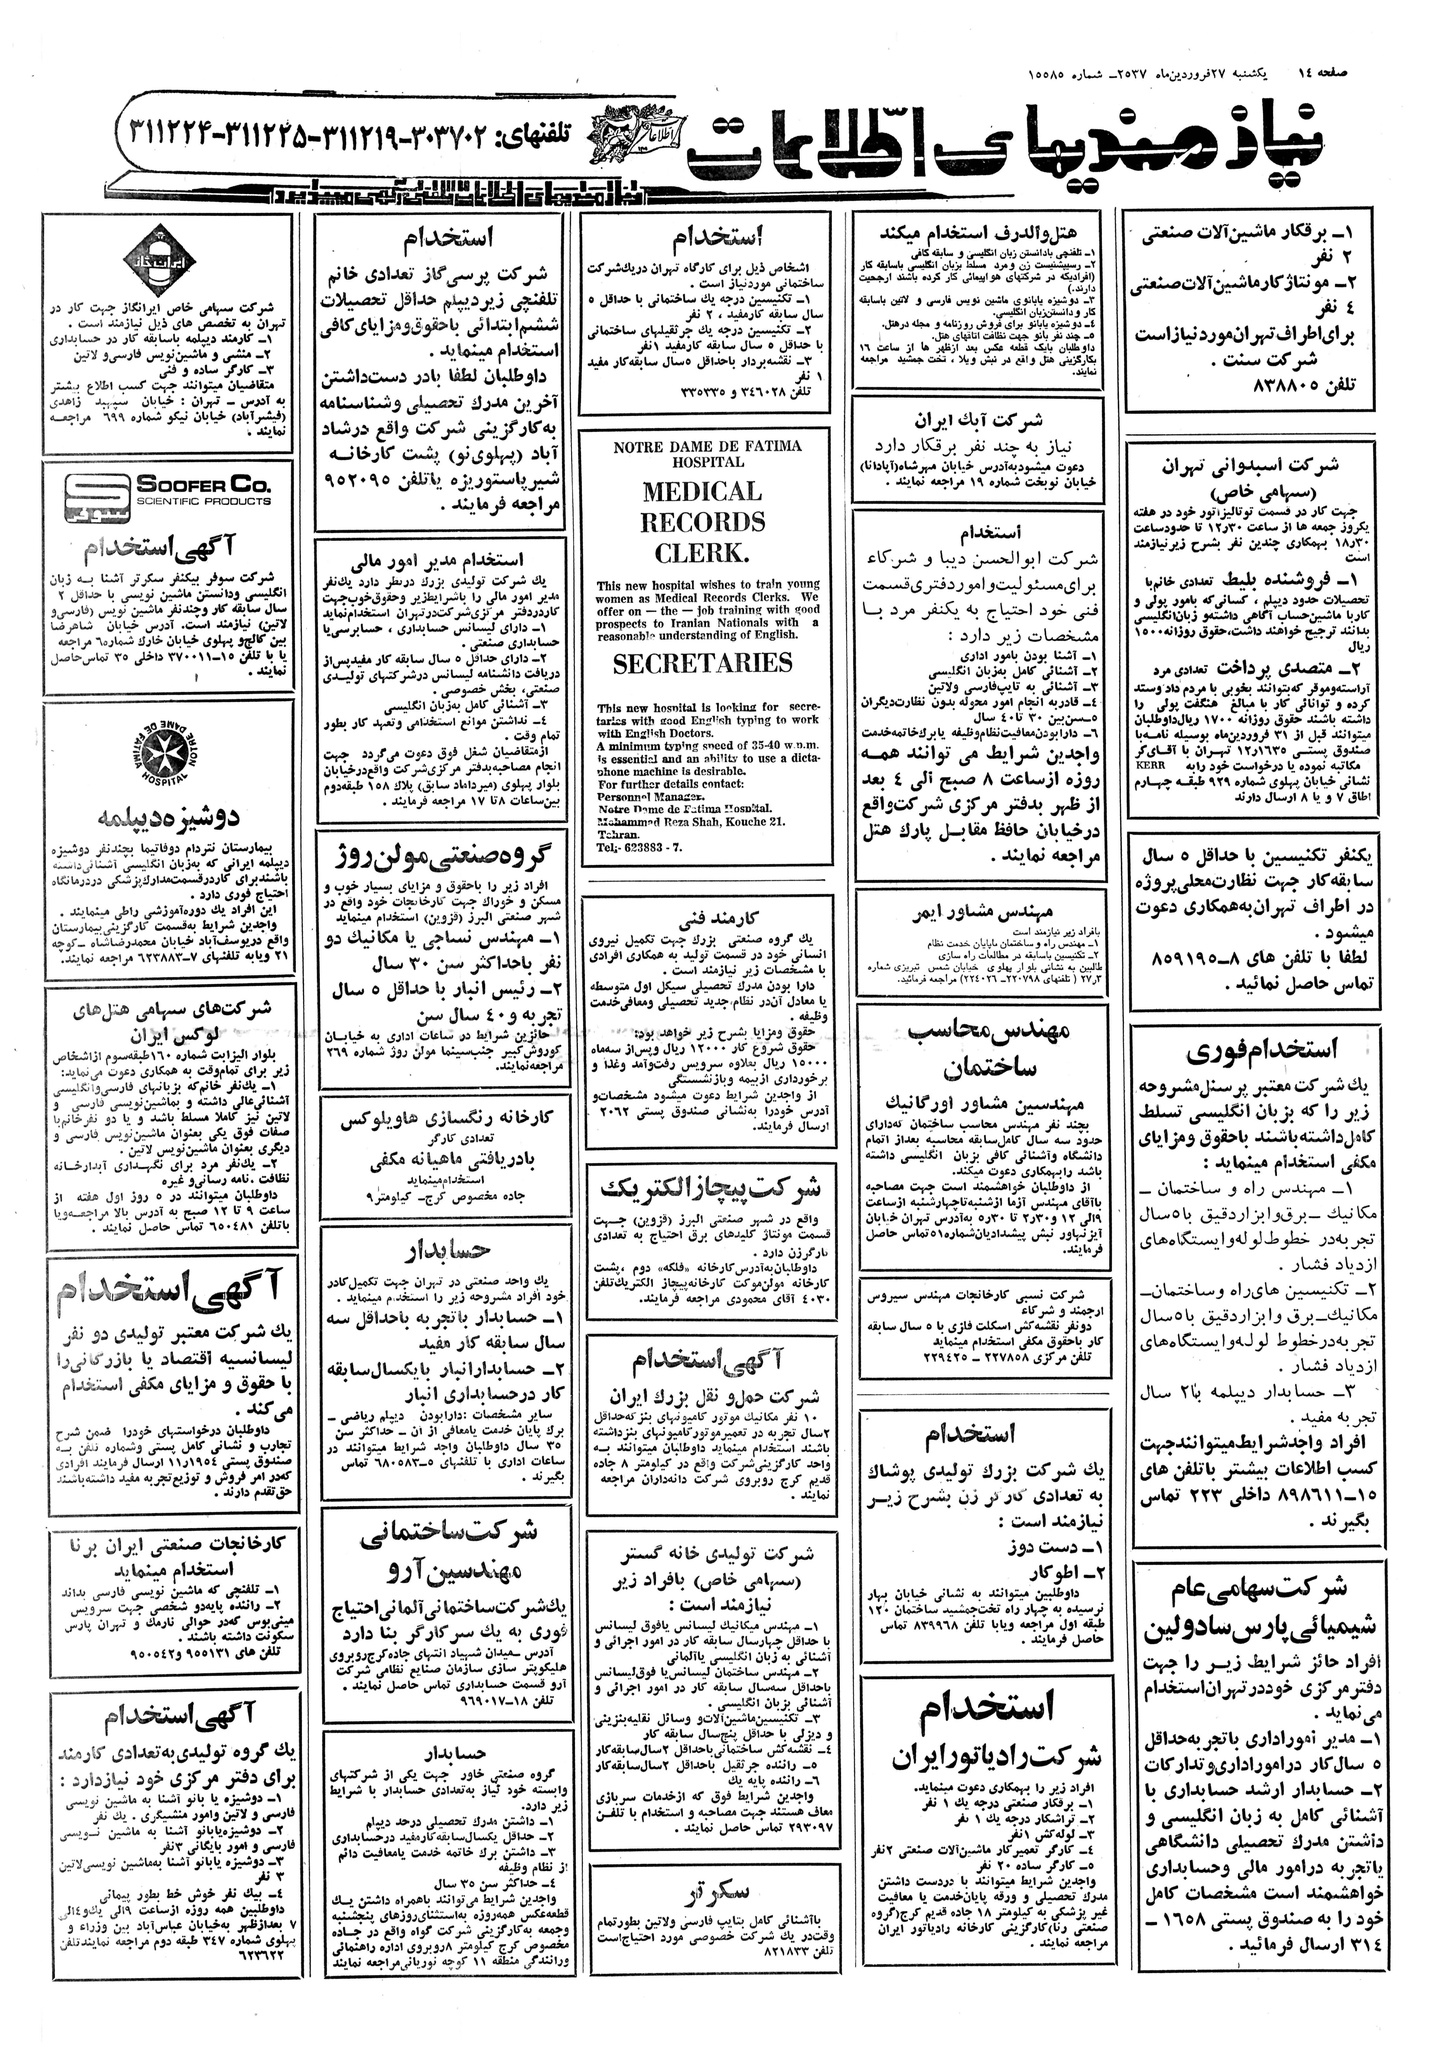 صفحه ۱۴ یکشنبه ۲۷ فروردین‌ماه ۲۵۳۷ـ شماره ۱۵۵۸۵
نیازمندیهای اطلاعات
تلفنهای: ۳۰۳۷۰۲-۳۱۱۲۱۹-۳۱۱۲۲۵-۳۱۱۲۲۴
نیازمندیهای اطلاعات تلفنی آگهی میپذیرد
۱ـ برقکار ماشین‌آلات صنعتی
۲ نفر
۲ـ مونتاژکار ماشین‌آلات صنعتی
۴ نفر
برای اطراف تهران مورد نیاز است
شرکت سنت .
تلفن ۸۳۸۸۰۵
شرکت اسبدوانی تهران
(سهامی خاص)
جهت کار در قسمت توتالیزاتور خود در هفته
یکروز جمعه ها از ساعت ۱۲ر۳۰ تا حدود ساعت
۱۸ر۳۰ بهمکاری چندین نفر بشرح زیر نیازمند
است
۱ـ فروشنده بلیط تعدادی خانم با
تحصیلات حدود دیپلم ، کسانی‌که بامور پولی و
کار با ماشین حساب آگاهی داشته و زبان انگلیسی
بدانند ترجیح خواهند داشت، حقوق روزانه ۱۵۰۰
ریال
۲ـ متصدی پرداخت تعدادی مرد
آراسته و موقر که بتوانند بخوبی با مردم داد و ستد
کرده و توانائی کار با مبالغ هنگفت پولی را
داشته باشند حقوق روزانه ۱۷۰۰ ریال داوطلبان
میتوانند قبل از ۳۱ فروردین‌ماه بوسیله نامه با
صندوق پستی ۱۲ر۱۶۳۵ تهران با آقای کر
KERR مکاتبه نموده یا درخواست خود را به
نشانی خیابان پهلوی شماره ۹۲۹ طبقه چهارم
اطاق ۷ و یا ۸ ارسال دارند
یکنفر تکنیسین با حداقل ۵ سال
سابقه کار جهت نظارت محلی پروژه
در اطراف تهران به همکاری دعوت
میشود .
لطفا با تلفن های ۸ـ۸۵۹۱۹۵
تماس حاصل نمائید .
استخدام فوری
یک شرکت معتبر پرسنل مشروحه
زیر را که بزبان انگلیسی تسلط
کامل داشته باشند با حقوق و مزایای
مکفی استخدام مینماید :
۱ـ مهندس راه و ساختمان ـ
مکانیک ـ برق و ابزار دقیق با ۵ سال
تجربه در خطوط لوله و ایستگاه های
ازدیاد فشار .
۲ـ تکنیسین های راه و ساختمان ـ
مکانیک ـ برق و ابزار دقیق با ۵ سال
تجربه در خطوط لوله و ایستگاه های
ازدیاد فشار .
۳ـ حسابدار دیپلمه با ۲ سال
تجربه مفید .
افراد واجد شرایط میتوانند جهت
کسب اطلاعات بیشتر با تلفن های
۱۵ـ۸۹۸۶۱۱ داخلی ۲۲۳ تماس
بگیرند .
شرکت سهامی عام
شیمیائی پارس سادولین
افراد حائز شرایط زیر را جهت
دفتر مرکزی خود در تهران استخدام
می‌نماید .
۱ـ مدیر امور اداری با تجربه حداقل
۵ سال کار در امور اداری و تدارکات
۲ـ حسابدار ارشد حسابداری با
آشنائی کامل به زبان انگلیسی و
داشتن مدرک تحصیلی دانشگاهی
با تجربه در امور مالی و حسابداری
خواهشمند است مشخصات کامل
خود را به صندوق پستی ۱۶۵۸ ـ
۳۱۴ ارسال فرمائید .
هتل والدرف استخدام میکند
۱ـ تلفنچی با دانستن زبان انگلیسی و سابقه کافی
۲ـ رسپشنیست زن و مرد مسلط بزبان انگلیسی با سابقه کار
(افرادیکه در شرکتهای هواپیمائی کار کرده باشند ارجعیت
دارند.)
۳ـ دوشیزه یا بانوی ماشین نویس فارسی و لاتین با سابقه
کار و دانستن زبان انگلیسی.
۴ـ دوشیزه یا بانو برای فروش روزنامه و مجله در هتل.
۵ـ چند نفر بانو جهت نظافت اتاقهای هتل.
داوطلبان با یک قطعه عکس بعد از ظهر ها از ساعت ۱۶
بکارگزینی هتل واقع در نبش ویلا ، تخت جمشید مراجعه
نمایند.
شرکت آبک ایران
نیاز به چند نفر برقکار دارد
دعوت میشود به آدرس خیابان مهرشاه (آپادانا)
خیابان نوبخت شماره ۱۹ مراجعه نمایند .
استخدام
شرکت ابوالحسن دیبا و شرکاء
برای مسئولیت و امور دفتری قسمت
فنی خود احتیاج به یکنفر مرد با
مشخصات زیر دارد :
۱ـ آشنا بودن بامور اداری
۲ـ آشنائی کامل به زبان انگلیسی
۳ـ آشنائی به تایپ فارسی و لاتین
۴ـ قادر به انجام امور محوله بدون نظارت دیگران
۵ـ سن بین ۳۰ تا ۴۰ سال
۶ـ دارا بودن معافیت نظام وظیفه یا برگ خاتمه خدمت
واجدین شرایط می توانند همه
روزه از ساعت ۸ صبح الی ۴ بعد
از ظهر بدفتر مرکزی شرکت واقع
در خیابان حافظ مقابل پارک هتل
مراجعه نمایند .
مهندس مشاور ایمر
بافراد زیر نیازمند است
۱ـ مهندس راه و ساختمان با پایان خدمت نظام
۲ـ تکنیسین با سابقه در مطالعات راه سازی
طالبین به نشانی بلوار پهلوی خیابان شمس تبریزی شماره
۲۷ر۳ ( تلفنهای ۲۲۰۷۹۸ـ ۲۲۴۰۲۶) مراجعه فرمائید.
مهندس محاسب
ساختمان
مهندسین مشاور اورگانیک
بچند نفر مهندس محاسب ساختمان که دارای
حدود سه سال کامل سابقه محاسبه بعد از اتمام
دانشگاه و آشنائی کافی بزبان انگلیسی داشته
باشد را بهمکاری دعوت میکند.
از داوطلبان خواهشمند است جهت مصاحبه
با آقای مهندس آزما از شنبه تا چهارشنبه از ساعت
۹ الی ۱۲ و ۲ر۳۰ تا ۵ر۳۰ به آدرس تهران خیابان
آیزنهاور نبش پیشدادیان شماره ۵۱ تماس حاصل
فرمایند.
شرکت نسبی کارخانجات مهندس سیروس
ارجمند و شرکاء
دو نفر نقشه کش اسکلت فلزی با ۵ سال سابقه
کار با حقوق مکفی استخدام مینماید
تلفن مرکزی ۲۲۷۸۵۸ ـ ۲۲۹۴۲۵
استخدام
یک شرکت بزرگ تولیدی پوشاک
به تعدادی کارگر زن بشرح زیر
نیازمند است :
۱ـ دست دوز
۲ـ اطوکار
داوطلبین میتوانند به نشانی خیابان بهار
نرسیده به چهار راه تخت‌جمشید ساختمان ۱۲۰
طبقه اول مراجعه و یا با تلفن ۸۳۹۹۶۸ تماس
حاصل فرمایند .
استخدام
شرکت رادیاتور ایران
افراد زیر را بهمکاری دعوت مینماید.
۱ـ برقکار صنعتی درجه یک ۱ نفر
۲ـ تراشکار درجه یک ۱ نفر
۳ـ لوله کش ۱ نفر
۴ـ کارگر تعمیرکار ماشین‌آلات صنعتی ۲ نفر
۵ـ کارگر ساده ۲۰ نفر
واجدین شرایط میتوانند با دردست داشتن
مدرک تحصیلی و ورقه پایان خدمت یا معافیت
غیر پزشکی به کیلومتر ۱۸ جاده قدیم کرج (گروه
صنعتی رنا) کارگزینی کارخانه رادیاتور ایران
مراجعه نمایند .
استخدام
اشخاص ذیل برای کارگاه تهران در یک شرکت
ساختمانی مورد نیاز است .
۱ـ تکنیسین درجه یک ساختمانی با حداقل ۵
سال سابقه کار مفید ، ۲ نفر
۲ـ تکنیسین درجه یک جرثقیلهای ساختمانی
با حداقل ۵ سال سابقه کار مفید ۱ نفر
۳ـ نقشه بردار با حداقل ۵ سال سابقه کار مفید
۱ نفر
تلفن ۳۴۶۰۲۸ و ۳۳۵۳۳۵
NOTRE DAME DE FATIMA
HOSPITAL
MEDICAL
RECORDS
CLERK.
This new hospital wishes to train young
women as Medical Records Clerks. We
offer on — the — job training with good
prospects to Iranian Nationals with a
reasonable understanding of English.
SECRETARIES
This new hosnital is looking for secre-
taries with good English typing to work
with English Doctors.
A minimum typing speed of 35-40 w.p.m.
is essential and an ability to use a dicta-
phone machine is desirable.
For further details contact:
Personnel Manager.
Notre Dame de Fatima Hospital.
Mohammad Reza Shah, Kouche 21.
Tehran.
Tel;- 623883 - 7.
کارمند فنی
یک گروه صنعتی بزرگ جهت تکمیل نیروی
انسانی خود در قسمت تولید به همکاری افرادی
با مشخصات زیر نیازمند است .
دارا بودن مدرک تحصیلی سیکل اول متوسطه
یا معادل آن در نظام جدید تحصیلی و معافی خدمت
وظیفه .
حقوق و مزایا بشرح زیر خواهد بود:
حقوق شروع کار ۱۲۰۰۰ ریال و پس از سه ماه
۱۵۰۰۰ ریال بعلاوه سرویس رفت و آمد و غذا و
برخورداری از بیمه و بازنشستگی
از واجدین شرایط دعوت میشود مشخصات و
آدرس خود را به نشانی صندوق پستی ۲۰۶۲
ارسال فرمایند.
شرکت پیچاز الکتریک
واقع در شهر صنعتی البرز (قزوین) جهت
قسمت مونتاژ کلیدهای برق احتیاج به تعدادی
کارگر زن دارد .
داوطلبان به آدرس کارخانه «فلکه» دوم ،پشت
کارخانه مولن موکت کارخانه پیچاز الکتریک تلفن
۴۰۳۰ آقای محمودی مراجعه فرمایند.
آگهی استخدام
شرکت حمل و نقل بزرگ ایران
۱۰ نفر مکانیک موتور کامیونهای بنز که حداقل
۲ سال تجربه در تعمیر موتور کامیونهای بنز داشته
باشند استخدام مینماید داوطلبان میتوانند به
واحد کارگزینی شرکت واقع در کیلومتر ۸ جاده
قدیم کرج روبروی شرکت دانه داران مراجعه
نمایند .
شرکت تولیدی خانه گستر
(سهامی خاص) بافراد زیر
نیازمند است :
۱ـ مهندس میکانیک لیسانس یا فوق لیسانس
با حداقل چهار سال سابقه کار در امور اجرائی و
آشنائی به زبان انگلیسی یا آلمانی
۲ـ مهندس ساختمان لیسانس یا فوق لیسانس
با حداقل سه سال سابقه کار در امور اجرائی و
آشنائی بزبان انگلیسی .
۳ـ تکنیسین ماشین‌آلات و وسائل نقلیه بنزینی
و دیزلی با حداقل پنج سال سابقه کار
۴ـ نقشه کش ساختمانی با حداقل ۲ سال سابقه کار
۵ـ راننده جرثقیل با حداقل ۲ سال سابقه کار
۶ـ راننده پایه یک
واجدین شرایط فوق که از خدمات سربازی
معاف هستند جهت مصاحبه و استخدام با تلفن
۲۹۳۰۹۷ تماس حاصل نمایند .
سکرتر
با آشنائی کامل بتایپ فارسی و لاتین بطور تمام
وقت در یک شرکت خصوصی مورد احتیاج است
تلفن ۸۲۱۸۳۳
استخدام
شرکت پرسی گاز تعدادی خانم
تلفنچی زیر دیپلم حداقل تحصیلات
ششم ابتدائی با حقوق و مزایای کافی
استخدام مینماید .
داوطلبان لطفا با در دست داشتن
آخرین مدرک تحصیلی و شناسنامه
به کارگزینی شرکت واقع در شاد
آباد (پهلوی نو) پشت کارخانه
شیر پاستوریزه یا تلفن ۹۵۲۰۹۵
مراجعه فرمایند .
استخدام مدیر امور مالی
یک شرکت تولیدی بزرگ در نظر دارد یکنفر
مدیر امور مالی را با شرایط زیر و حقوق خوب جهت
کار در دفتر مرکزی شرکت در تهران استخدام نماید
۱ـ دارای لیسانس حسابداری ، حسابرسی یا
حسابداری صنعتی .
۲ـ دارای حداقل ۵ سال سابقه کار مفید پس از
دریافت دانشنامه لیسانس در شرکتهای تولیدی
صنعتی، بخش خصوصی .
۳ـ آشنائی کامل به زبان انگلیسی
۴ـ نداشتن موانع استخدامی و تعهد کار بطور
تمام وقت .
از متقاضیان شغل فوق دعوت می‌گردد جهت
انجام مصاحبه بدفتر مرکزی شرکت واقع در خیابان
بلوار پهلوی (میرداماد سابق) پلاک ۱۵۸ طبقه دوم
بین ساعات ۸ تا ۱۷ مراجعه فرمایند .
گروه صنعتی مولن روژ
افراد زیر را با حقوق و مزایای بسیار خوب و
مسکن و خوراک جهت کارخانجات خود واقع در
شهر صنعتی البرز (قزوین) استخدام مینماید
۱ـ مهندس نساجی یا مکانیک دو
نفر با حداکثر سن ۳۰ سال
۲ـ رئیس انبار با حداقل ۵ سال
تجربه و ۴۰ سال سن
حائزین شرایط در ساعات اداری به خیابان
کوروش کبیر جنب سینما مولن روژ شماره ۲۶۹
مراجعه نمایند.
کارخانه رنگسازی هاویلوکس
تعدادی کارگر
با دریافتی ماهیانه مکفی
استخدام مینماید
جاده مخصوص کرج- کیلومتر ۹
حسابدار
یک واحد صنعتی در تهران جهت تکمیل کادر
خود افراد مشروحه زیر را استخدام مینماید .
۱ـ حسابدار با تجربه با حداقل سه
سال سابقه کار مفید
۲ـ حسابدار انبار با یکسال سابقه
کار در حسابداری انبار
سایر مشخصات :دارا بودن دیپلم ریاضی ـ
برگ پایان خدمت یا معافی از آن ـ حداکثر سن
۳۵ سال داوطلبان واجد شرایط میتوانند در
ساعات اداری با تلفنهای ۵ـ۶۸۰۵۸۳ تماس
بگیرند .
شرکت ساختمانی
مهندسین آرو
یک شرکت ساختمانی آلمانی احتیاج
فوری به یک سرکارگر بنا دارد
آدرس ـ میدان شهیاد انتهای جاده کرج روبروی
هلیکوپتر سازی سازمان صنایع نظامی شرکت
آرو قسمت حسابداری تماس حاصل نمایند .
تلفن ۱۸ـ۹۶۹۰۱۷
حسابدار
گروه صنعتی خاور جهت یکی از شرکتهای
وابسته خود نیاز به تعدادی حسابدار با شرایط
زیر دارد.
۱ـ داشتن مدرک تحصیلی در حد دیپلم
۲ـ حداقل یکسال سابقه کار مفید در حسابداری
۳ـ داشتن برگ خاتمه خدمت یا معافیت دائم
از نظام وظیفه
۴ـ حداکثر سن ۳۵ سال
واجدین شرایط می‌توانند با همراه داشتن یک
قطعه عکس همه روزه به استثنای روزهای پنجشنبه
و جمعه به کارگزینی شرکت گواه واقع در جاده
مخصوص کرج کیلومتر ۸ روبروی اداره راهنمائی
و رانندگی منطقه ۱۱ کوچه نوریانی مراجعه نمایند
ایرانگاز
شرکت سهامی خاص ایرانگاز جهت کار در
تهران به تخصص های ذیل نیازمند است .
۱ـ کارمند دیپلمه با سابقه کار در حسابداری
۲ـ منشی و ماشین نویس فارسی و لاتین
۳ـ کارگر ساده و فنی
متقاضیان میتوانند جهت کسب اطلاع بیشتر
به آدرس ـ تهران : خیابان سپهبد زاهدی
(فیشرآباد) خیابان نیکو شماره ۶۹۹ مراجعه
نمایند .
SOOFER CO.
SCIENTIFIC PRODUCTS
سوفر
آگهی استخدام
شرکت سوفر بیکنفر سکرتر آشنا به زبان
انگلیسی و دانستن ماشین نویسی با حداقل ۲
سال سابقه کار و چند نفر ماشین نویس (فارسی و
لاتین) نیازمند است. آدرس خیابان شاهرضا
بین کالج و پهلوی خیابان خارک شماره ۶ مراجعه
یا با تلفن ۱۵ـ۳۷۰۰۱۱ داخلی ۳۵ تماس حاصل
نمایند .
NOTRE DAME DE FATIMA
HOSPITAL
دوشیزه دیپلمه
بیمارستان نتردام دوفاتیما بچند نفر دوشیزه
دیپلمه ایرانی که به زبان انگلیسی آشنائی داشته
باشند برای کار در قسمت مدارک پزشکی در درمانگاه
احتیاج فوری دارد .
این افراد یک دوره آموزشی را طی مینمایند .
واجدین شرایط به قسمت کارگزینی بیمارستان
واقع در یوسف آباد خیابان محمدرضاشاه ـ کوچه
۲۱ و یا به تلفنهای ۷-۶۲۳۸۸۳ مراجعه نمایند.
شرکت های سهامی هتل های
لوکس ایران
بلوار الیزابت شماره ۱۶۰ طبقه سوم از اشخاص
زیر برای تمام وقت به همکاری دعوت می نماید:
۱ـ یک نفر خانم که بزبانهای فارسی و انگلیسی
آشنائی عالی داشته و بماشین نویسی فارسی و
لاتین نیز کاملا مسلط باشد و یا دو نفر خانم با
صفات فوق یکی بعنوان ماشین نویس فارسی و
دیگری بعنوان ماشین نویس لاتین .
۲ـ یک نفر مرد برای نگهداری آبدارخانه
نظافت ، نامه رسانی و غیره
داوطلبان میتوانند در ۵ روز اول هفته از
ساعت ۹ تا ۱۲ صبح به آدرس بالا مراجعه و یا
با تلفن ۶۵۰۴۸۱ تماس حاصل نمایند .
آگهی استخدام
یک شرکت معتبر تولیدی دو نفر
لیسانسیه اقتصاد یا بازرگانی را
با حقوق و مزایای مکفی استخدام
می کند .
داوطلبان درخواستهای خود را ضمن شرح
تجارب و نشانی کامل پستی و شماره تلفن به
صندوق پستی ۱۱ر۱۹۵۴ ارسال فرمایند افرادی
که در امر فروش و توزیع تجربه مفید داشته باشند
حق تقدم دارند .
کارخانجات صنعتی ایران برنا
استخدام مینماید
۱ـ تلفنچی که ماشین نویسی فارسی بداند
۲ـ راننده پایه دو شخصی جهت سرویس
مینی‌بوس که در حوالی نارمک و تهران پارس
سکونت داشته باشند .
تلفن های ۹۵۵۱۳۱ و ۹۵۰۵۴۲
آگهی استخدام
یک گروه تولیدی به تعدادی کارمند
برای دفتر مرکزی خود نیاز دارد :
۱ـ دوشیزه یا بانو آشنا به ماشین نویسی
فارسی و لاتین و امور منشیگری . یک نفر
۲ـ دوشیزه یا بانو آشنا به ماشین نویسی
فارسی و امور بایگانی ۳ نفر
۳ـ دوشیزه یا بانو آشنا به ماشین نویسی لاتین
۳ نفر
۴ـ بیک نفر خوش خط بطور پیمانی
داوطلبین همه روزه از ساعت ۹ الی ۱۰ و ۴ الی
۷ بعد از ظهر به خیابان عباس‌آباد بین وزراء و
پهلوی شماره ۳۴۷ طبقه دوم مراجعه نمایند تلفن
۶۲۳۶۲۲